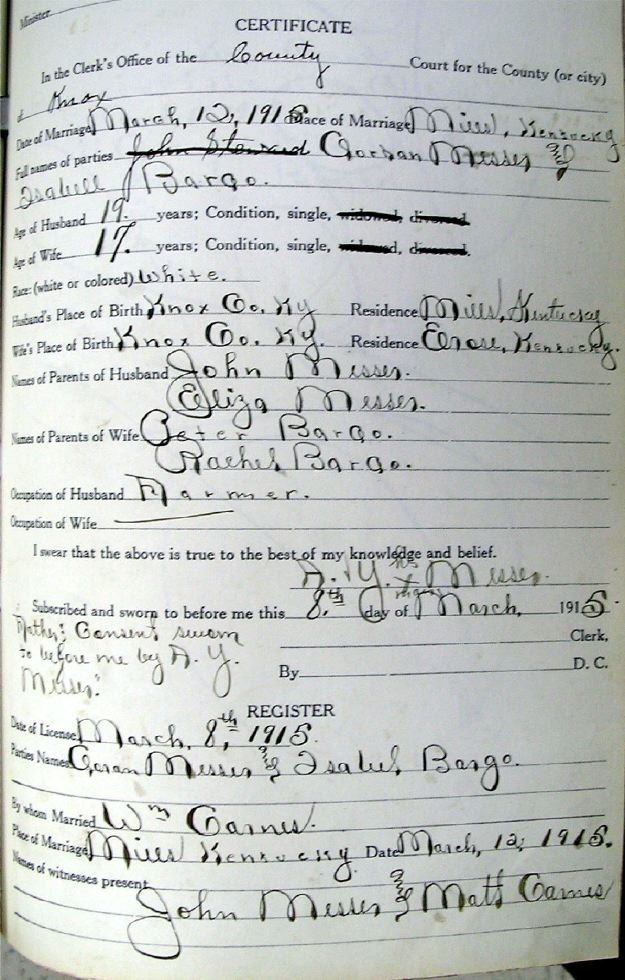 Minister
CERTIFICATE
In the Clerk's Office of the County Court for the County (or city)
of Knox
Date of Marriage March, 12, 1915 Place of Marriage Mills, Kentucky
Full names of parties John Steward Gorban Messer &
Isabell Bargo.
Age of Husband 19. years; Condition, single, widowed, divorced.
Age of Wife 17. years; Condition, single, widowed, divorced.
Race: (white or colored) White.
Husband's Place of Birth Knox Co. Ky Residence Mills, Kentucky
Wife's Place of Birth Knox Co. Ky. Residence Erose, Kentucky.
Names of Parents of Husband John Messer.
Eliza Messer.
Names of Parents of Wife Peter Bargo.
Rachel Bargo.
Occupation of Husband Farmer.
Occupation of Wife
I swear that the above is true to the best of my knowledge and belief.
his
A. Y. x Messer.
mark
Subscribed and sworn to before me this 8.th day of March, 1915
Clerk,
By D. C.
Father's Consent sworn
to before me by A. Y.
Messer.
REGISTER
Date of License March, 8,th 1915.
Parties Names Goran Messer & Isabel Bargo.
By whom Married Wm Carnes.
Place of Marriage Mills Kentucky Date March, 12, 1915.
Names of witnesses present
John Messer & Matt Carnes